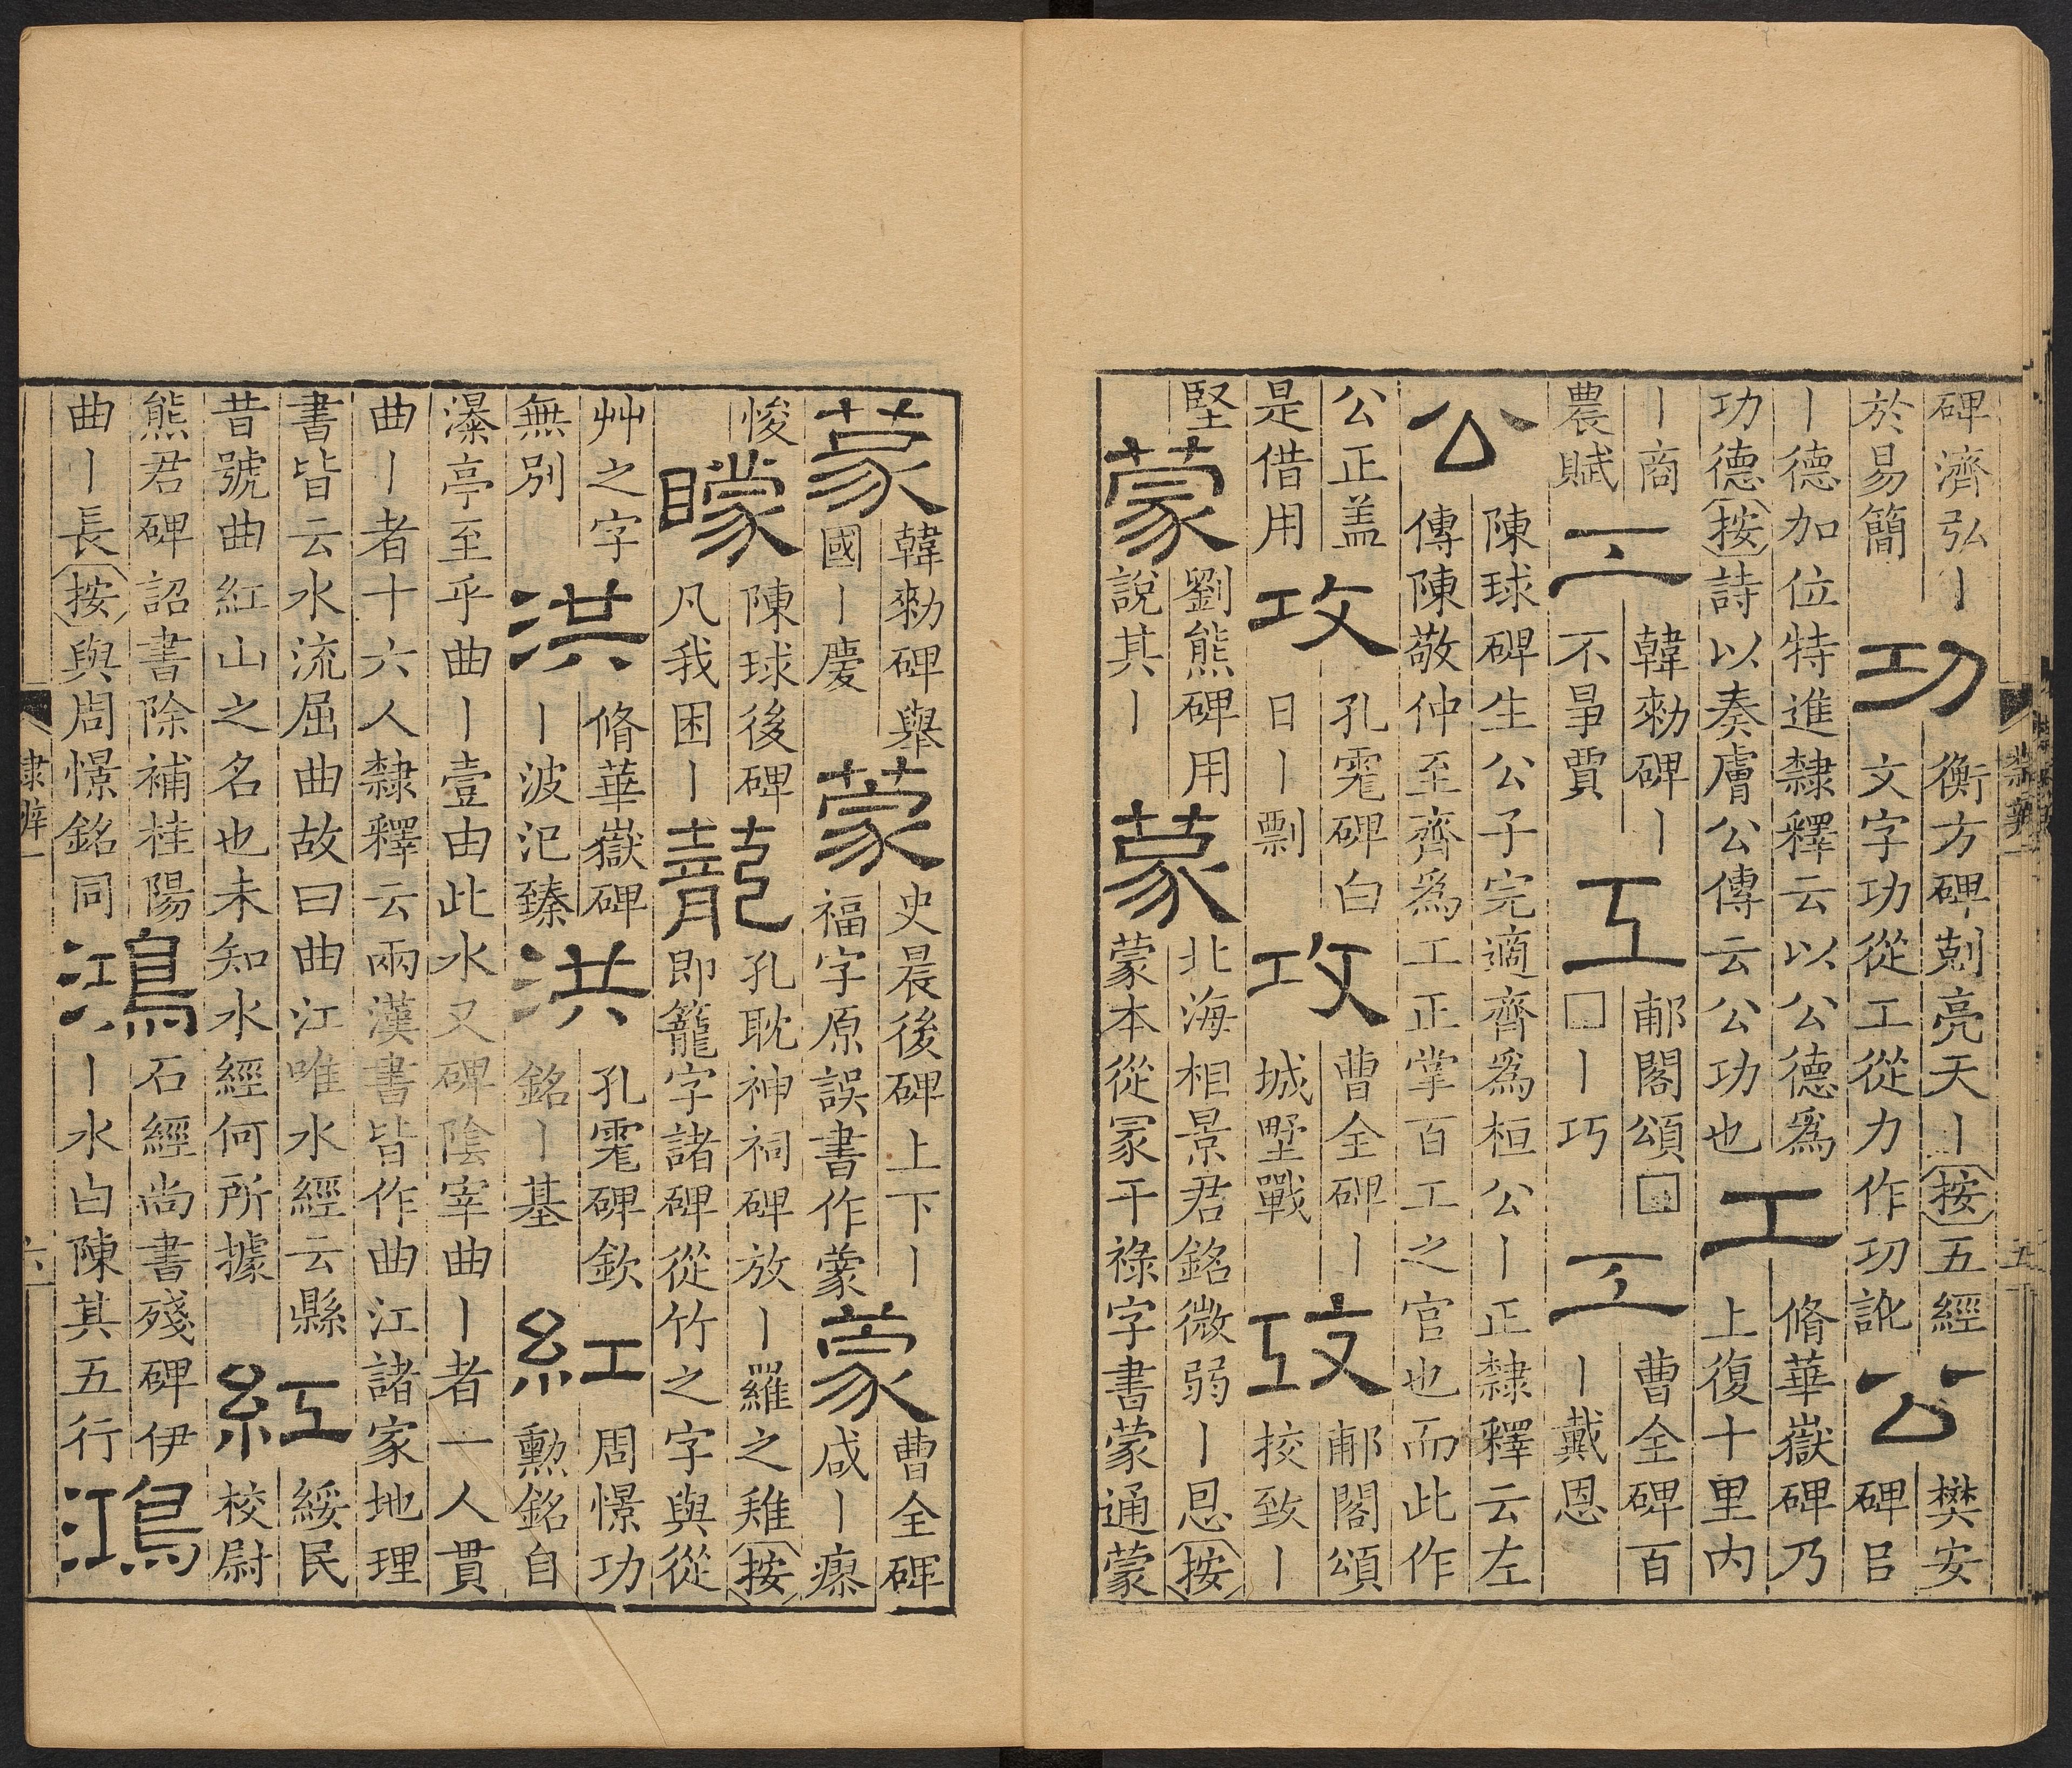 碑濟弘丨
於易簡
功
衡方碑剋亮天丨按五經
文字功從工從力作㓛訛
公
樊安
碑㠯
丨德加位特進隸釋云以公德爲
功德按詩以奏膚公傳云公功也
工
脩華嶽碑乃
上復十里内
丨商
農賦
工
韓勑碑丨
不㫡賈
工
郙閣頌□
□丨巧
工
曹全碑百
丨戴恩
公
陳球碑生公子完適齊爲桓公丨正隸釋云左
傳陳敬仲至齊爲工正掌百工之官也而此作
公正盖
是借用
攻
孔宙碑白
日丨剽
攻
曹全碑丨
城壄戰
攻
郙閣頌
挍致丨
堅
蒙
劉熊碑用
說其丨
蒙
北海相景君銘微弱丨恩按
蒙本從冡干祿字書蒙通蒙
隸辨
五
蒙
韓勑碑舉
國丨慶
蒙
史晨後碑上下丨
福字原誤書作蒙
蒙
曹全碑
咸丨瘝
悛
矇
陳球後碑
凡我困丨
蘢
孔耽神祠碑放丨羅之雉按
即籠字諸碑從竹之字與從
艸之字
無別
洪
脩華嶽碑
丨波汜臻
洪
孔宙碑欽
銘丨基
紅
周憬功
勳銘自
瀑亭至乎曲丨壹由此水又碑陰宰曲丨者一人貫
曲丨者十六人隸釋云兩漢書皆作曲江諸家地理
書皆云水流屈曲故曰曲江唯水經云縣
昔號曲紅山之名也未知水經何所據
紅
綏民
校尉
熊君碑詔書除補桂陽
曲丨長按與周憬銘同
鴻
石經尚書殘碑伊
丨水白陳其五行
鴻
隸辨一
六